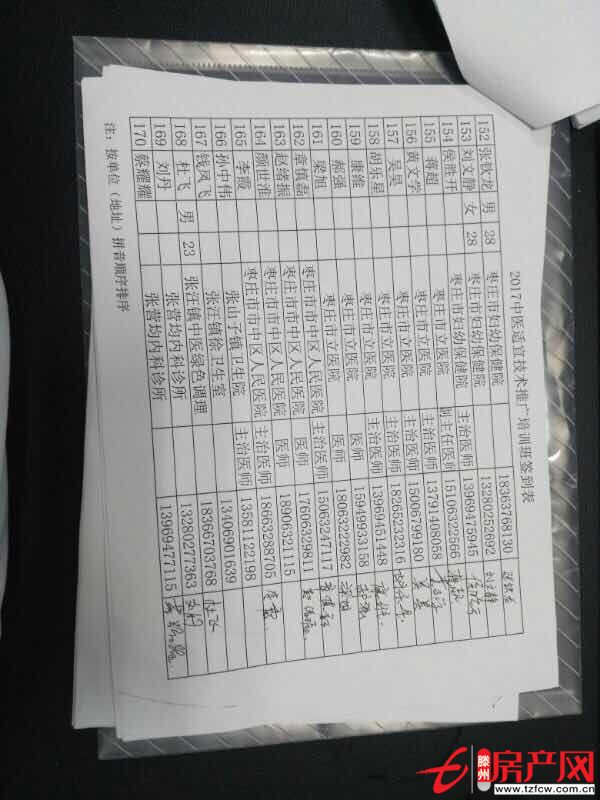 2017中医适宜技术推广培训班签到表
152 张钦龙 男 38 枣庄市妇幼保健院 18363768130
153 刘文静 女 28 枣庄市妇幼保健院 13280252692
154 侯胜开 枣庄市妇幼保健院 主治医师 13969475945
155 蒋超 枣庄市立医院 副主任医师 15106322566
156 黄文学 枣庄市立医院 主治医师 13791408058
157 吴昊 枣庄市立医院 主治医师 15006799180
158 胡乐星 枣庄市立医院 主治医师 18265252316
159 康维 枣庄市立医院 医师 13969451448
160 郝强 枣庄市立医院 15949933158
161 梁旭 枣庄市立医院 医师 18063222982
162 章慎磊 枣庄市市中区人民医院 主治医师 15063247117
163 赵绪振 枣庄市市中区人民医院 医师 17606329811
164 颜世淮 枣庄市市中区人民医院 医师 18906321115
165 李霞 枣庄市市中区人民医院 主治医师 18663288705
166 孙中伟 张山子镇卫生院 13581122198
167 钱凤飞 张汪镇徐卫生室 13406901639
168 杜飞 男 23 张汪镇中医绿色调理 18366703768 杜飞
169 刘丹 张营均内科诊所 13280277363
170 蔡耀耀 张营均内科诊所 13969477115
注：按单位（地址）拼音顺序排序
滕州房产网
www.tzfcw.com.cn